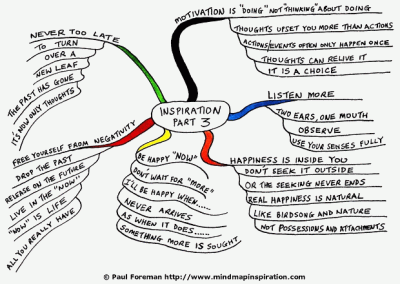 INSPIRATION
PART 3
MOTIVATION IS "DOING" NOT "THINKING" ABOUT DOING
THOUGHTS UPSET YOU MORE THAN ACTIONS
ACTIONS/EVENTS OFTEN ONLY HAPPEN ONCE
THOUGHTS CAN RELIVE IT
IT IS A CHOICE
LISTEN MORE
TWO EARS, ONE MOUTH
OBSERVE
USE YOUR SENSES FULLY
HAPPINESS IS INSIDE YOU
DON'T SEEK IT OUTSIDE
OR THE SEEKING NEVER ENDS
REAL HAPPINESS IS NATURAL
LIKE BIRDSONG AND NATURE
NOT POSSESSIONS AND ATTACHMENTS
BE HAPPY "NOW"
DON'T WAIT FOR "MORE"
I'LL BE HAPPY WHEN......
NEVER ARRIVES
AS WHEN IT DOES....
SOMETHING MORE IS SOUGHT
FREE YOURSELF FROM NEGATIVITY
DROP THE PAST
RELEASE ON THE FUTURE
LIVE IN THE "NOW"
"NOW" IS LIFE
ALL YOU REALLY HAVE
NEVER TOO LATE
TO TURN
OVER A
NEW LEAF
THE PAST HAS GONE
IT'S NOW ONLY THOUGHTS
© Paul Foreman http://www.mindmapinspiration.com